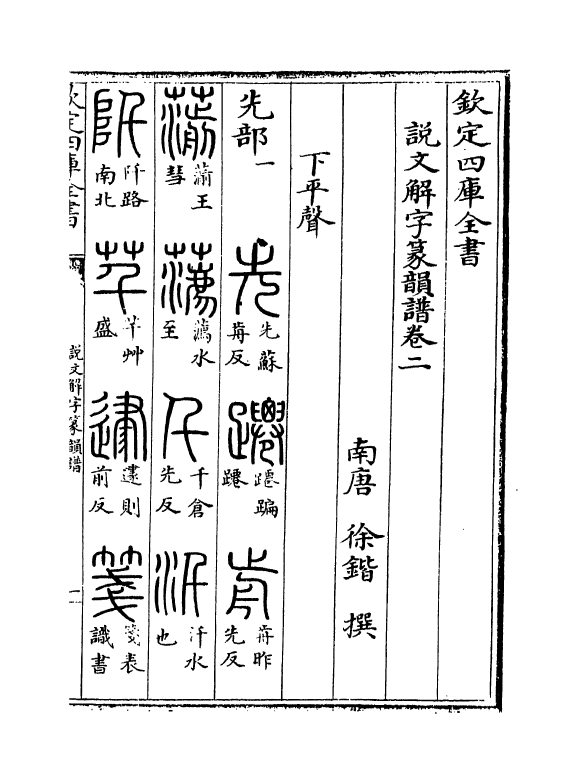 欽定四庫全書
說文解字篆韻譜卷二
南唐 徐鍇 撰
下平聲
先部一 先 先蘇歬反 蹮 蹮蹁蹮 歬 歬昨先反
葥 葥王彗 瀳 瀳水至 千 千倉先反 汘 汘水也
阡 阡路南北 芊 芊艸盛 則前反 箋 箋表識書
欽定四庫全書
說文解字篆韻譜
一